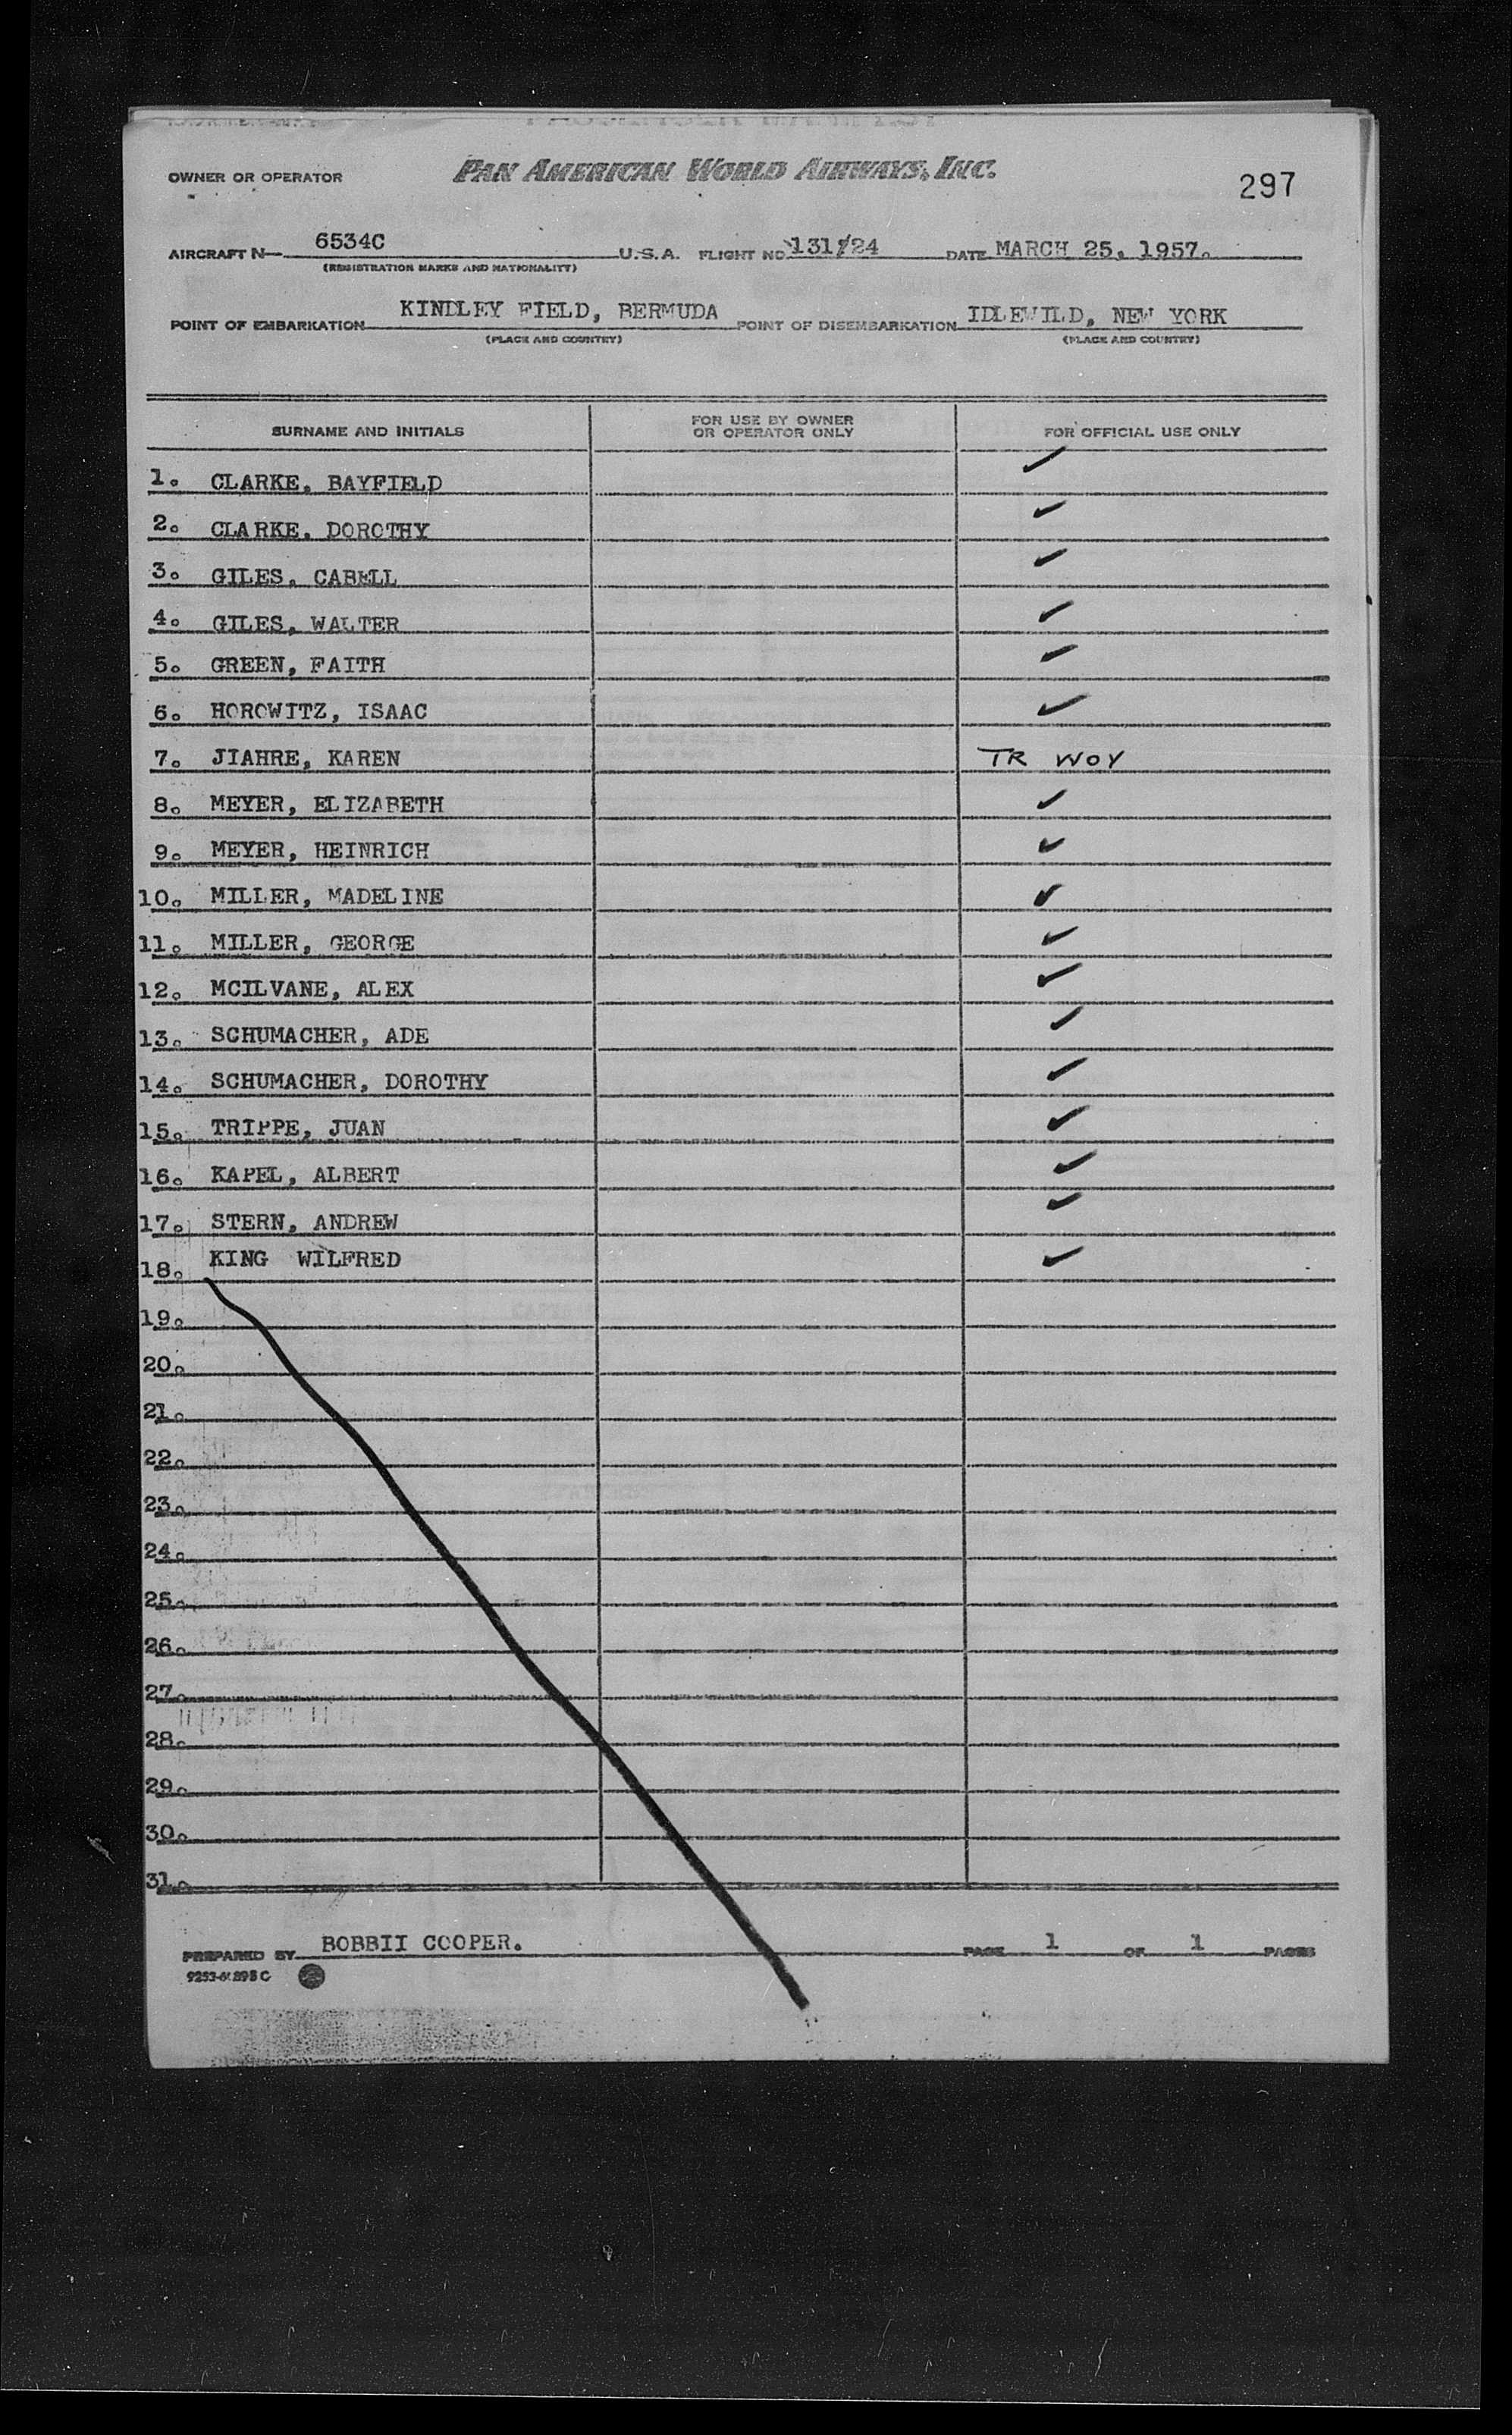 PAN AMERICAN WORLD AIRWAYS, INC.
OWNER OR OPERATOR
297
AIRCRAFT N— 6534C U.S.A. FLIGHT NO 131/24 DATE MARCH 25, 1957.
(REGISTRATION MARKS AND NATIONALITY)
POINT OF EMBARKATION KINDLEY FIELD, BERMUDA POINT OF DISEMBARKATION IDLEWILD, NEW YORK
(PLACE AND COUNTRY) (PLACE AND COUNTRY)
SURNAME AND INITIALS FOR USE BY OWNER OR OPERATOR ONLY FOR OFFICIAL USE ONLY
1. CLARKE, BAYFIELD ✓
2. CLARKE, DOROTHY ✓
3. GILES, CABELL ✓
4. GILES, WALTER ✓
5. GREEN, FAITH ✓
6. HOROWITZ, ISAAC ✓
7. JIAHRE, KAREN TR WOV
8. MEYER, ELIZABETH ✓
9. MEYER, HEINRICH ✓
10. MILLER, MADELINE ✓
11. MILLER, GEORGE ✓
12. MCILVANE, ALEX ✓
13. SCHUMACHER, ADE ✓
14. SCHUMACHER, DOROTHY ✓
15. TRIPPE, JUAN ✓
16. KAPEL, ALBERT ✓
17. STERN, ANDREW ✓
18. KING WILFRED ✓
19.
20.
21.
22.
23.
24.
25.
26.
27.
28.
29.
30.
31.
PREPARED BY BOBBII COOPER. PAGE 1 OF 1 PAGES